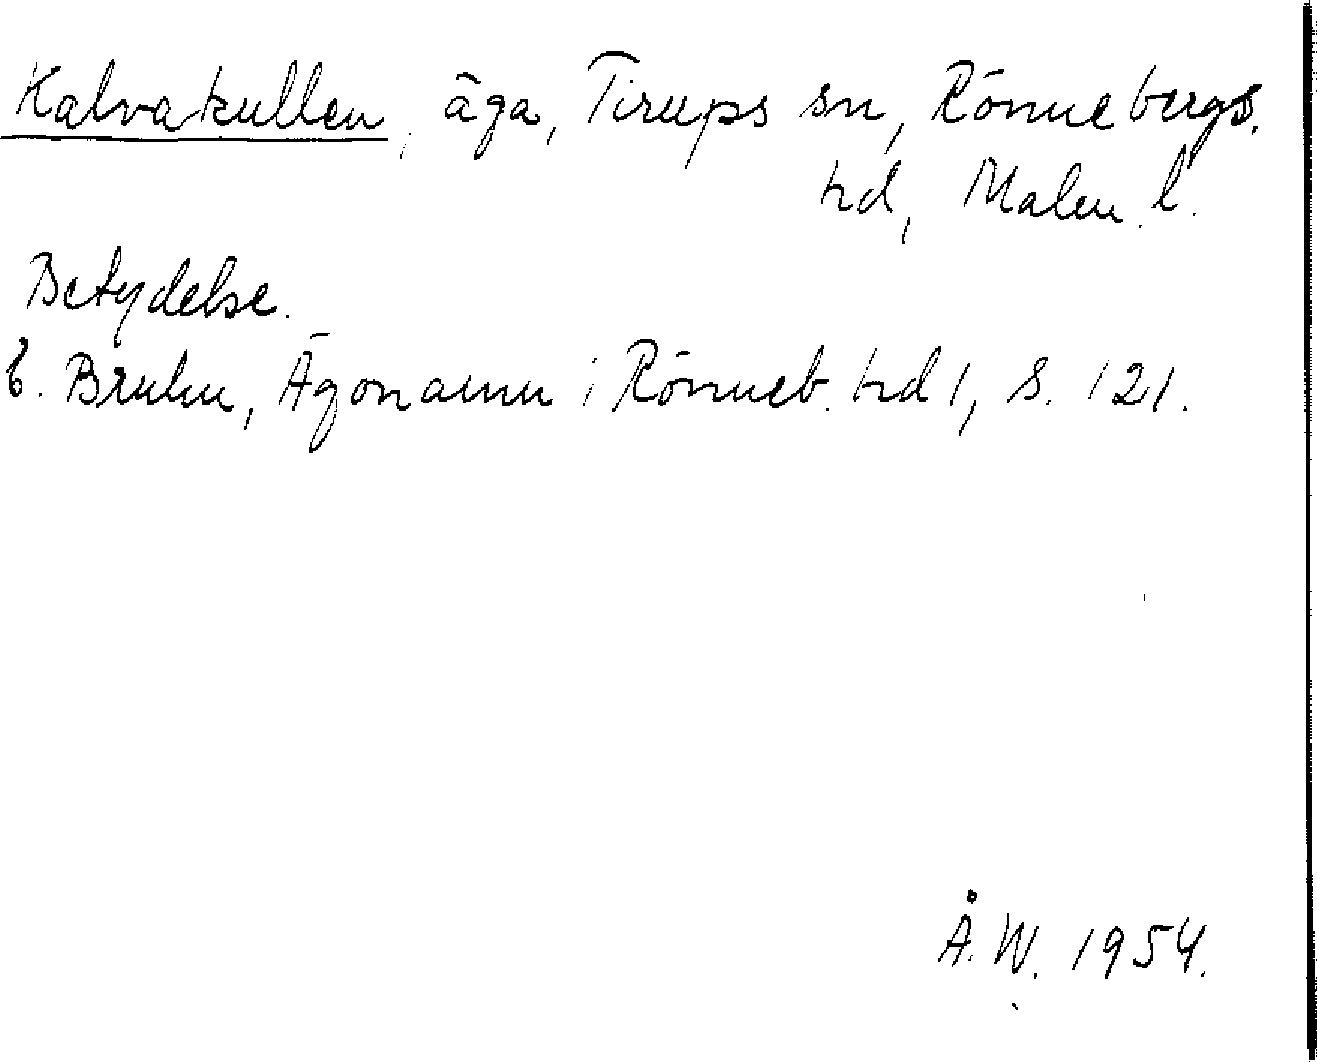 Kalvakullen, äga, Tirups sn, Rönnebergs.
hd, Malm. l.
Betydelse.
E. Bruhn, Ägonamn i Rönneb. hd 1, s. 121.
Å. W. 1954.